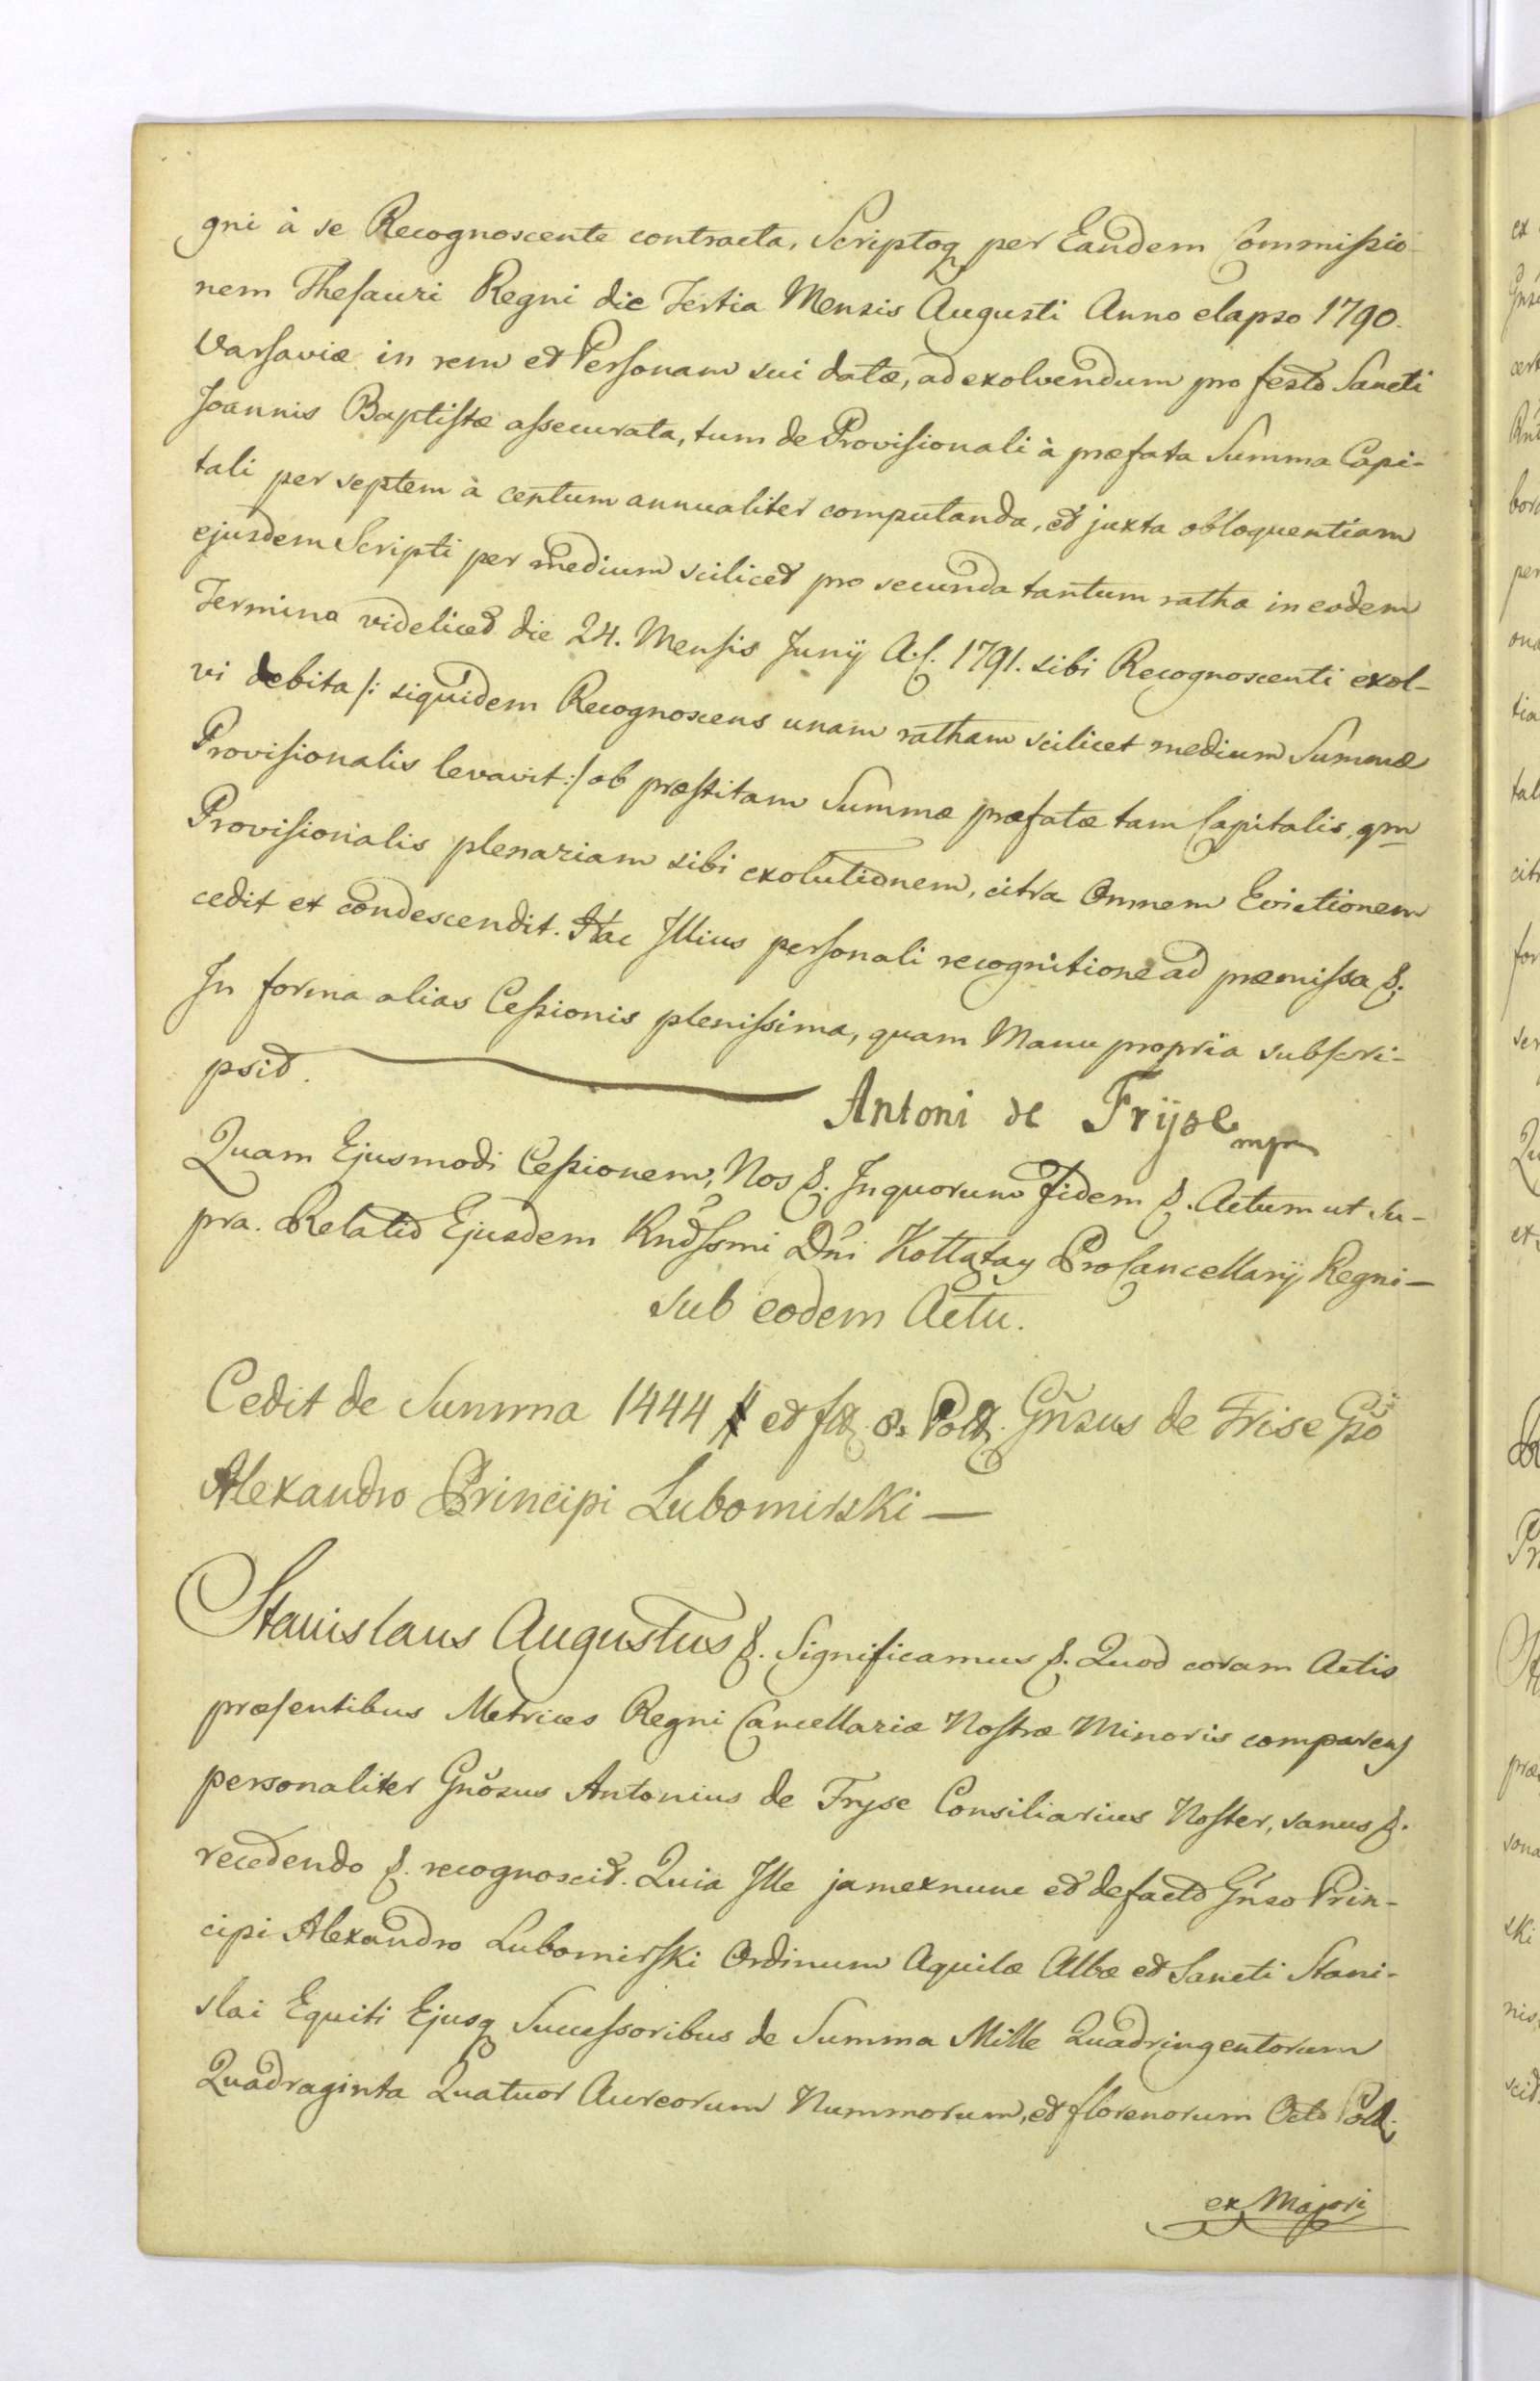 gni à se Recognoscente contracta, Scriptoq per Eandem Commissio-
nem Thesauri Regni die Tertia Mensis Augusti Anno elapso 1790.
Varsaviæ in rem et Personam sui datæ, ad exolvendum pro festo Sancti
Joannis Baptistæ assecurata, tum de Provisionali à præfata Summa Capi-
tali per septem à centum annualiter computanda, et juxta obloquentiam
ejusdem Scripti per medium scilicet pro secunda tantum ratha in eodem
Termino videlicet die 24. Mensis Junÿ A.C. 1791. sibi Recognoscenti exol-
vi debita /: siquidem Recognoscens unam ratham scilicet medium Summæ
Provisionalis levavit :/ ob præstitam Summæ præfatæ tam Capitalis, qm
Provisionalis plenariam sibi exolutionem, citra Omnem Evictionem
cedit et condescendit. Hac Illius personali recognitione ad præmissa &.
In forma alias Cessionis plenissima, quam Manu propria subscri-
psit.
Antoni de Frÿse mpr
Quam Ejusmodi Cessionem, Nos &. In quorum fidem &. Actum ut Su-
pra. Relatio Ejusdem Rndssmi Dni Kołłątay ProCancellarÿ Regni —
Sub eodem Actu.
Cedit de Summa 1444 # et flg. 8. Polg. Gnsus de Frise Gso
Alexandro Principi Lubomirski —
Stanislaus Augustus &. Significamus &. Quod coram Actis
præsentibus Metrices Regni Cancellariæ Nostræ Minoris comparens
personaliter Gnosus Antonius de Fryse Consiliarius Noster, sanus &.
recedendo &. recognoscit. Quia Ille jamexnunc et defacto Gnso Prin-
cipi Alexandro Lubomirski Ordinum Aquilæ Albæ et Sancti Stani-
slai Equiti Ejusq Successoribus de Summa Mille Quadringentorum
Quadraginta Quatuor Aureorum Nummorum, et florenorum Octo Poll.
ex Majori